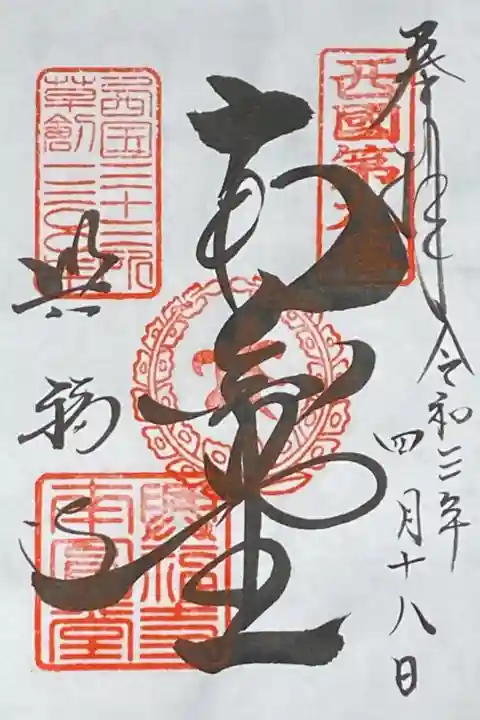 奉拝
令和三年
四月十八日
西國第九
南圓堂
西国三十三所
草創一三〇〇年
興福寺
興福寺
南圓堂